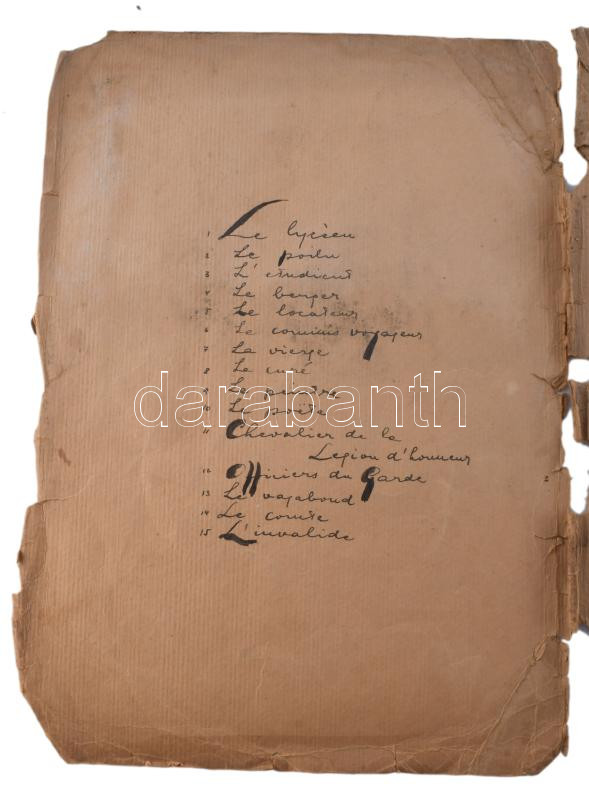 1 Le lycéen
2 Le poilu
3 L'étudient
4 Le berger
5 Le locateur
6 Le commis voyageur
7 La vierge
8 Le curé
9 Le peintre
10 Le poète
11 Chevalier de la
Legion d'honneur
12 Officiers du Garde
13 Le vagabond
14 Le comte
15 L'invalide
darabanth